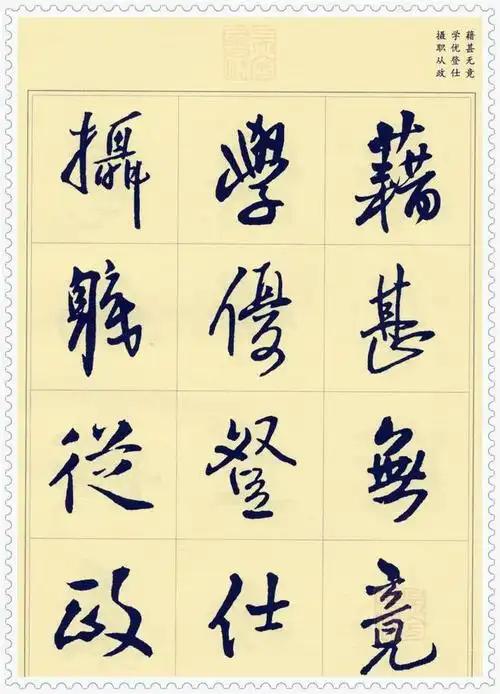 藉甚无竟
学优登仕
摄职从政
藉甚無竟
學優登仕
攝職從政